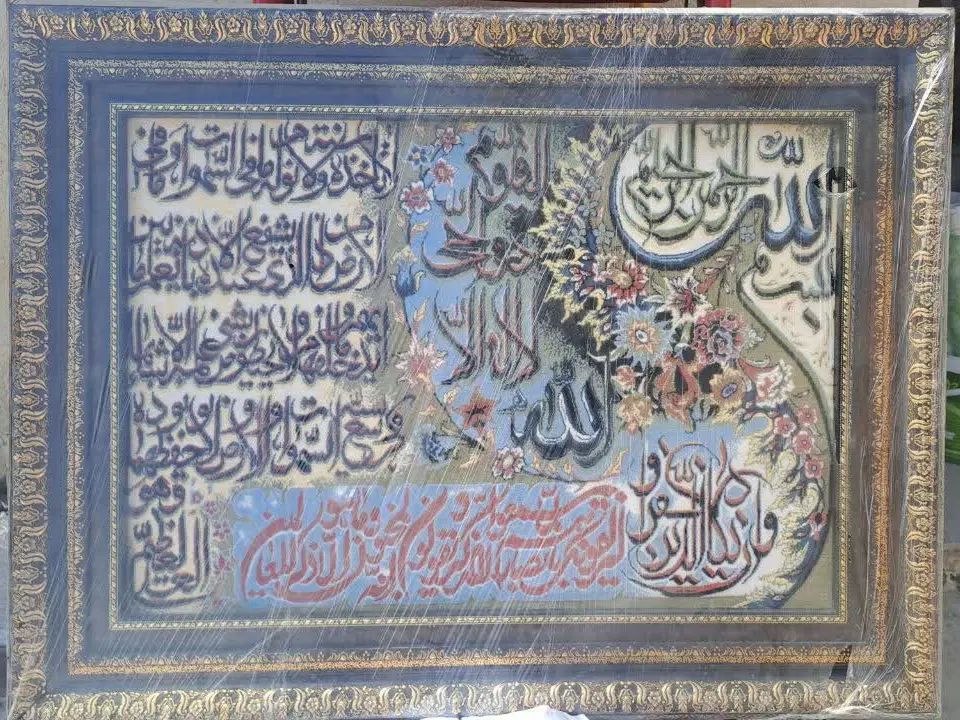 بسم الله الرحمن الرحيم
الله لا اله الا
هو الحي القيوم لا
تأخذه سنة ولا نوم له ما في السموات وما في
الارض من ذا الذي يشفع عنده الا باذنه يعلم ما بين
ايديهم وما خلفهم ولا يحيطون بشئ من علمه الا بما شاء
وسع كرسيه السموات والارض ولا يؤده حفظهما
وهو
العلي العظيم
وان يكاد الذين كفروا
ليزلقونك بابصارهم لما سمعوا الذكر ويقولون انه لمجنون وما هو الا ذكر للعالمين